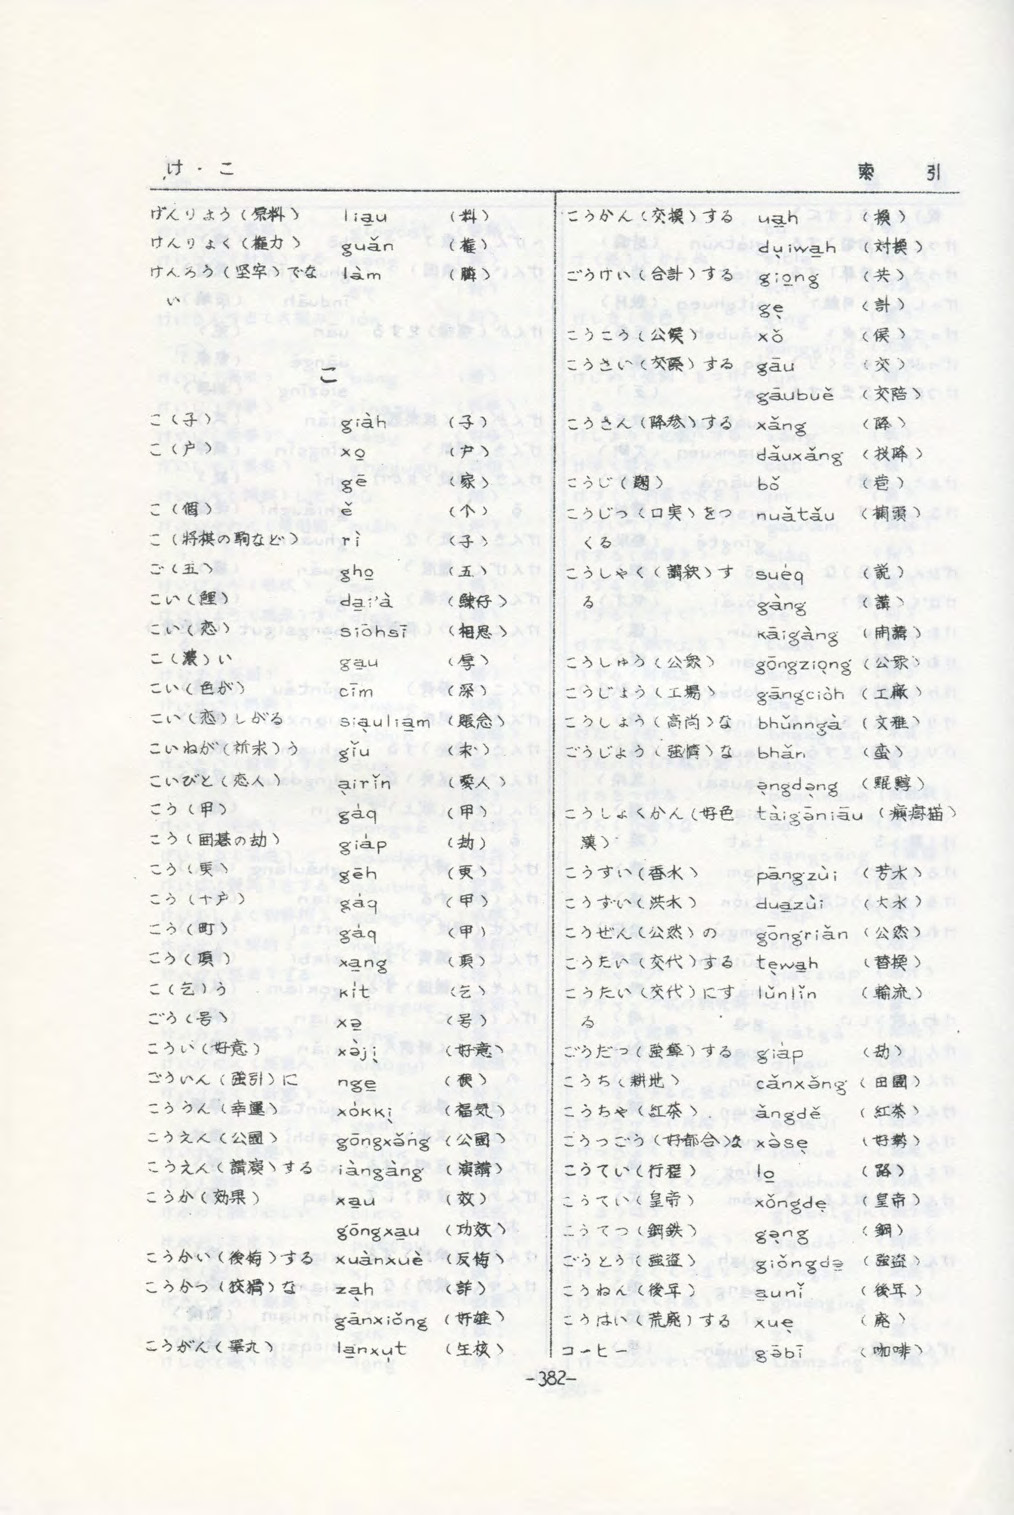 け・こ
索 引
げんりょう(原料) lia̱u (料)
けんりょく(権力) guăn (權)
けんろう(堅牢)でな làm (膦)
い
こ
こ(子) giàh (子)
こ(戸) xo̱ (户)
gē (家)
こ(個) ĕ (个)
こ(将棋の駒など) rì (子)
ご(五) gho̱ (五)
こい(鯉) da̱i'à (鰊仔)
こい(恋) siōhsī (相思)
こ(濃)い ga̱u (厚)
こい(色が) cīm (深)
こい(恋)しがる siạulia̱m (賬念)
こいねが(祈求)う gĭu (求)
こいびと(恋人) ạirĭn (愛人)
こう(甲) gáq (甲)
こう(囲碁の劫) giáp (劫)
こう(更) gēh (更)
こう(十戸) gáq (甲)
こう(町) gáq (甲)
こう(項) xa̱ng (項)
こ(乞)う kít (乞)
ごう(号) xə̱ (号)
こうい(好意) xə̀jị (好意)
ごういん(強引)に nge̱ (硬)
こううん(幸運) xókkị (福気)
こうえん(公園) gōngxə̆ng (公園)
こうえん(講演)する iàngàng (演講)
こうか(効果) xa̱u (效)
gōngxa̱u (功效)
こうかい(後悔)する xuànxuè (反悔)
こうかつ(狡猾)な zạh (詐)
gānxiŏng (奸雄)
こうがん(睪丸) la̱nxụt (生核)
こうかん(交換)する ua̱h (換)
dụiwa̱h (対換)
ごうけい(合計)する gio̱ng (共)
gẹ (計)
こうこう(公侯) xŏ (侯)
こうさい(交際)する gāu (交)
gāubuĕ (交陪)
こうさん(降参)する xăng (降)
dăuxăng (投降)
こうじ(麹) bŏ (苞)
こうじつ(口実)をつ nuătău (襉頭)
くる
こうしゃく(講釈)す suéq (説)
る gàng (講)
kāigàng (開講)
こうしゅう(公衆) gōngziọng (公衆)
こうじょう(工場) gāngciòh (工廠)
こうしょう(高尚)な bhŭnngà (文雅)
ごうじょう(強情)な bhăn (蛮)
こうしょくかん(好色 tàigəniāu (癩膏猫)
漢)
こうすい(香水) pāngzùi (芳水)
こうずい(洪水) dua̱zùi (大水)
こうぜん(公然)の gōngriăn (公然)
こうたい(交代)する tẹwa̱h (替換)
こうたい(交代)にす lŭnlĭn (輪流)
る
ごうだつ(強奪)する giáp (劫)
こうち(耕地) cănxə̆ng (田園)
こうちゃ(紅茶) ăngdĕ (紅茶)
こうつごう(好都合)な xə̀sẹ (好勢)
こうてい(行程) lo̱ (路)
こうてい(皇帝) xŏngdẹ (皇帝)
こうてつ(鋼鉄) gə̣ng (鋼)
ごうとう(強盗) giŏngdə̱ (強盗)
こうねん(後年) a̱unĭ (後年)
こうはい(荒廃)する xuẹ (廃)
コーヒー gəbī (咖啡)
-382-